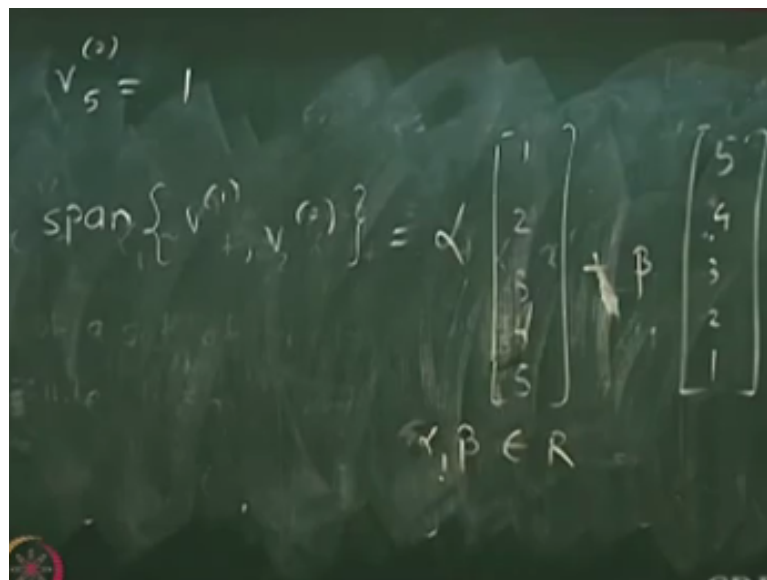 v₅⁽²⁾ = 1
span { v⁽¹⁾, v⁽²⁾ } = α [1 2 3 4 5] + β [5 4 3 2 1]
α, β ∈ R